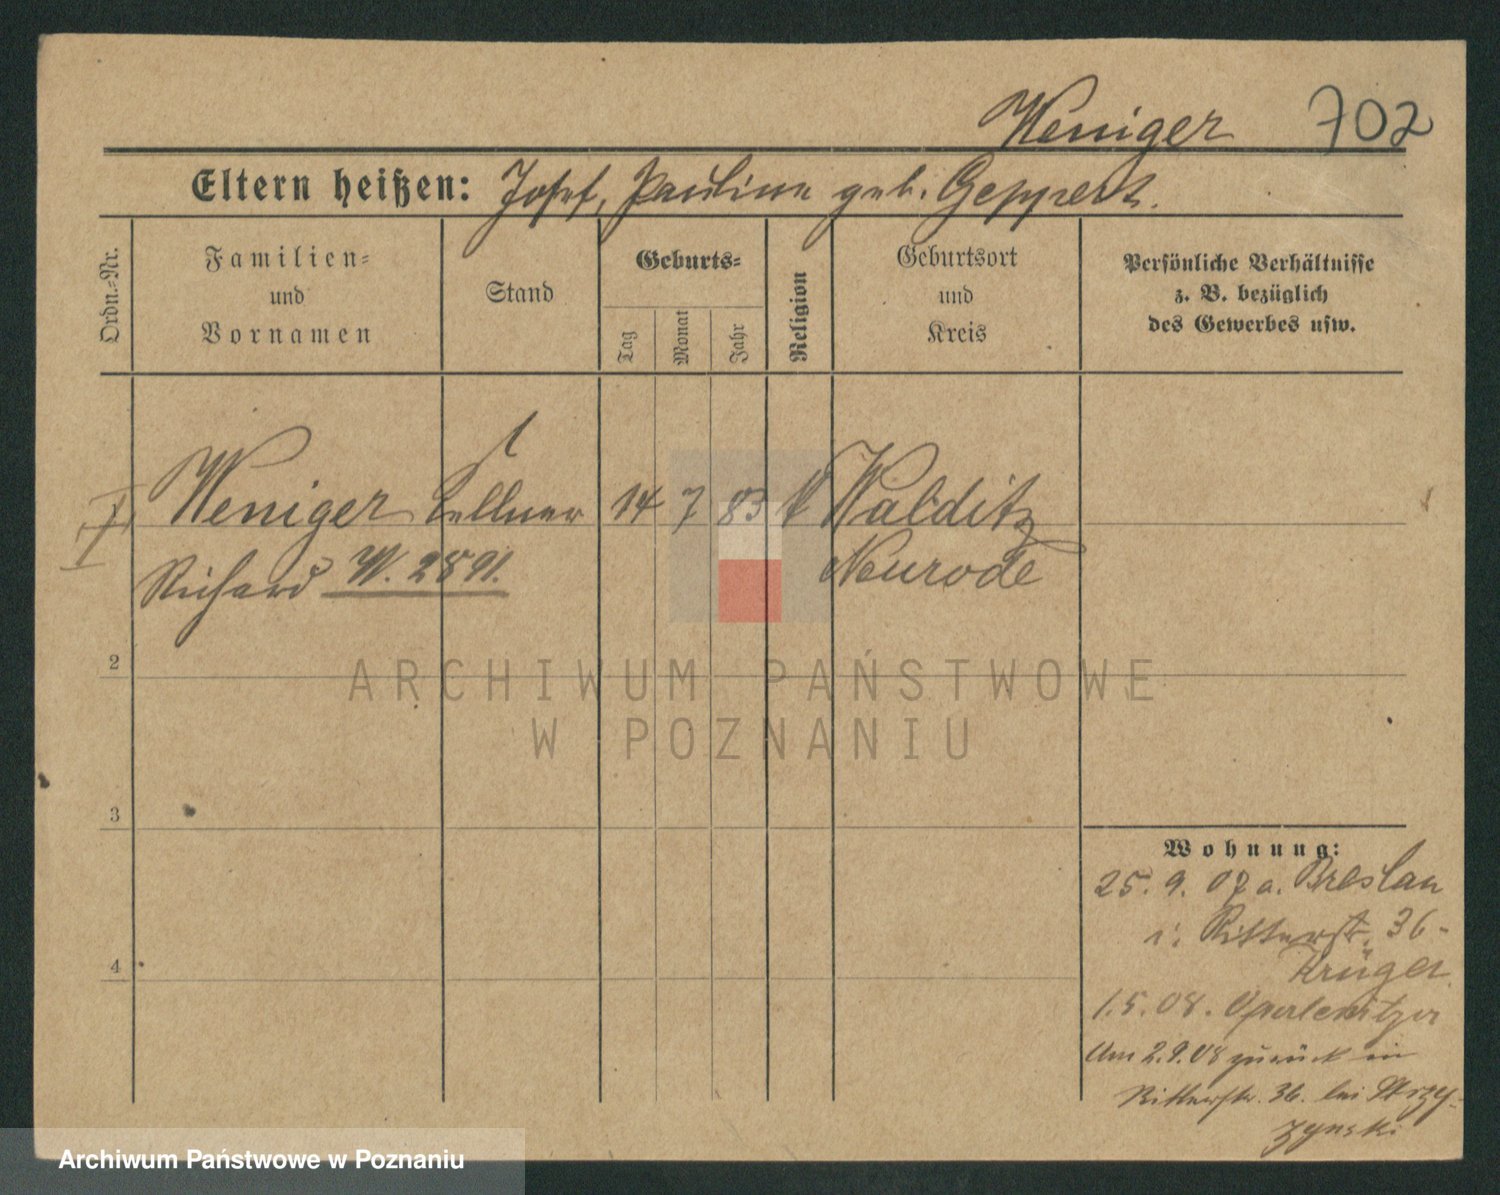 Weniger 702
Eltern heißen: Josef, Pauline geb. Geppert.
Ordn.=Nr.
Familien=
und
Vornamen
Stand
Geburts=
Tag
Monat
Jahr
Religion
Geburtsort
und
Kreis
Persönliche Verhältnisse
z. B. bezüglich
des Gewerbes usw.
Weniger Kellner 14 7 83 k Walditz
Richard W. 2891. Neurode
2
3
4
Wohnung:
25. 9. 07 a. Breslau
i. Ritterst. 36-
Krüger
1.5.08.
Am 2.9.08 zurück in
Ritterstr. 36. bei
ARCHIWUM PAŃSTWOWE
W POZNANIU
Archiwum Państwowe w Poznaniu